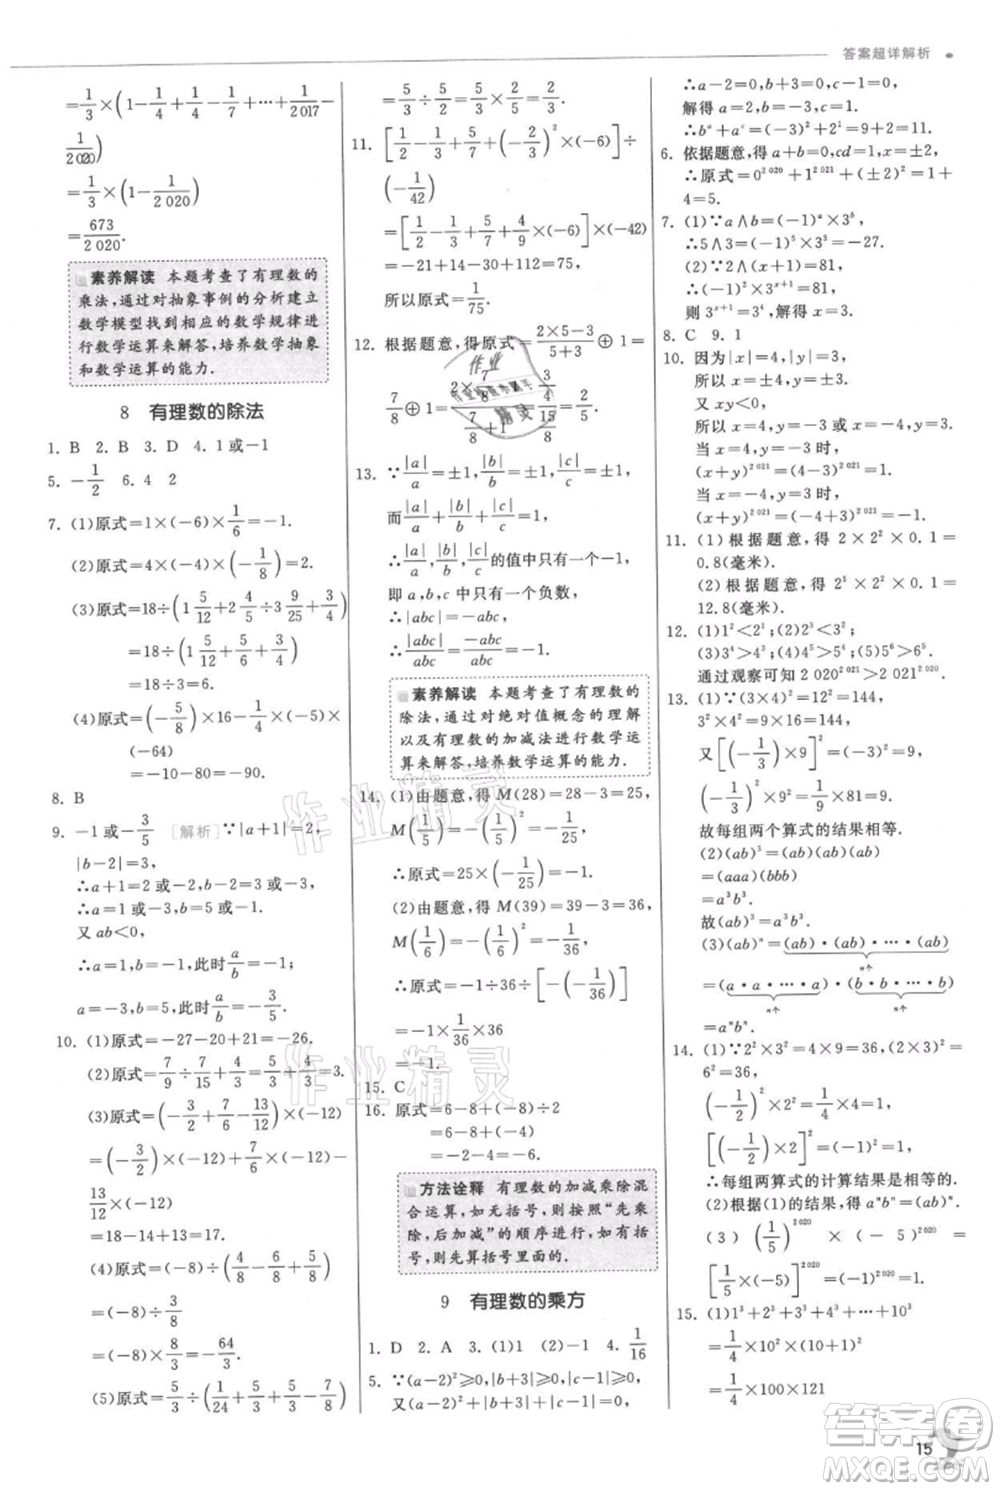 答案超详解析
=1/3×(1-1/4+1/4-1/7+…+1/2017-
1/2020)
=1/3×(1-1/2020)
=673/2020.
素养解读 本题考查了有理数的
乘法,通过对抽象事例的分析建立
数学模型找到相应的数学规律进
行数学运算来解答,培养数学抽象
和数学运算的能力.
8 有理数的除法
1. B 2. B 3. D 4. 1或-1
5. -1/2 6. 4 2
7. (1)原式=1×(-6)×1/6=-1.
(2)原式=4×(-4)×(-1/8)=2.
(3)原式=18÷(1 5/12+2 4/9÷3 9/25+3/4)
=18÷(1 5/12+5/6+3/4)
=18÷3=6.
(4)原式=(-5/8)×16-1/4×(-5)×
(-64)
=-10-80=-90.
8. B
9. -1或-3/5 [解析]∵|a+1|=2,
|b-2|=3,
∴a+1=±2,b-2=±3,
∴a=1或-3,b=5或-1.
又ab<0,
∴a=1,b=-1,此时a/b=-1;
a=-3,b=5,此时a/b=-3/5.
10. (1)原式=-27-20+21=-26.
(2)原式=7/9÷7/15×4/3+4/3=5/3+4/3=3.
(3)原式=(-3/2+7/6-13/12)×(-12)
=(-3/2)×(-12)+7/6×(-12)-
13/12×(-12)
=18-14+13=17.
(4)原式=(-8)÷(4/8-6/8+5/8)
=(-8)÷3/8
=(-8)×8/3=-64/3.
(5)原式=5/3÷(1/24+5/24)×3/4
=5/3÷1/4×1/4=5/3.
11. [1/2-1/3+5/7+(-2/3)²×(-6)]÷
(-1/42)
=[1/2-1/3+5/7+4/9×(-6)]×(-42)
=-21+14-30+112=75,
所以原式=1/75.
12. 根据题意,得原式=(2×5-3)/(5+3)⊕1=
7/8⊕1=(2×7/8-1)/(7/8+1)=(3/4)/(15/8)=2/5.
13. ∵|a|/a=±1,|b|/b=±1,|c|/c=±1,
而|a|/a+|b|/b+|c|/c=1,
∴|a|/a,|b|/b,|c|/c的值中只有一个-1,
即a,b,c中只有一个负数,
∴|abc|=-abc,
∴|abc|/abc=-abc/abc=-1.
素养解读 本题考查了有理数的
除法,通过对绝对值概念的理解
以及有理数的加减法进行数学运
算来解答,培养数学运算的能力.
14. (1)由题意,得M(28)=28-3=25,
M(1/5)=-(1/5)²=-1/25,
∴原式=25×(-1/25)=-1.
(2)由题意,得M(39)=39-3=36,
M(1/6)=-(1/6)²=-1/36,
∴原式=-1÷36÷[-(-1/36)]
=-1×1/36×36
=-1.
15. C
16. 原式=6-8+(-8)÷2
=6-8+(-4)
=-2-4=-6.
方法诠释 有理数的加减乘除混
合运算,如无括号,则按照“先乘
除,后加减”的顺序进行,如有括
号,则先算括号里面的.
9 有理数的乘方
1. D 2. A 3. (1)1 (2)-1 4. 1/16
5. ∵(a-2)²≥0,|b+3|≥0,
又(a-2)²+|b+3|=0,
∴a-2=0,b+3=0,
解得a=2,b=-3.
∴bᵃ+aᶜ=9+2=11.
6. 依据题意,得a+b=0,cd=1,x=±2,
∴原式=0²⁰²⁰+1²⁰²¹+(±2)²=1+
4=5.
7. (1)∵a∧b=(-1)ᵃ×3ᵇ,
∴5∧3=(-1)⁵×3³=-27.
(2)∵2∧(x+1)=81,
∴(-1)²×3ˣ⁺¹=81,
则3ˣ⁺¹=3⁴,解得x=3.
8. C 9. 1
10. 因为|x|=4,|y|=3,
所以x=±4,y=±3.
又xy<0,
所以x=4,y=-3或x=-4,y=3.
当x=4,y=-3时,
(x+y)²⁰²¹=(4-3)²⁰²¹=1.
当x=-4,y=3时,
(x+y)²⁰²¹=(-4+3)²⁰²¹=-1.
11. (1)根据题意,得2×2²×0.1=
0.8(毫米).
(2)根据题意,得2⁵×2²×0.1=
12.8(毫米).
12. (1)1²<2¹;(2)2³<3²;
(3)3⁴>4³;(4)4⁵>5⁴;(5)5⁶>6⁵.
通过观察可知2020²⁰²¹>2021²⁰²⁰.
13. (1)∵(3×4)²=12²=144,
3²×4²=9×16=144,
又[(-1/3)×9]²=(-3)²=9,
(-1/3)²×9²=1/9×81=9.
故每组两个算式的结果相等.
(2)(ab)³=(ab)(ab)(ab)
=(aaa)(bbb)
=a³b³.
故(ab)³=a³b³.
(3)(ab)ⁿ=(ab)·(ab)·…·(ab)
n个
=(a·a·…·a)·(b·b·…·b)
n个 n个
=aⁿbⁿ.
14. (1)∵2²×3²=4×9=36,(2×3)²=
6²=36,
(-1/2)²×2²=1/4×4=1,
[(-1/2)×2]²=(-1)²=1,
∴每组两算式的计算结果是相等的.
(2)根据(1)的结果,得aⁿbⁿ=(ab)ⁿ.
(3)(1/5)²⁰²⁰×(-5)²⁰²⁰=
[1/5×(-5)]²⁰²⁰=(-1)²⁰²⁰=1.
15. (1)1³+2³+3³+4³+…+10³
=1/4×10²×(10+1)²
=1/4×100×121
15
作业精灵
作业精灵
答案圈
MXQE.COM